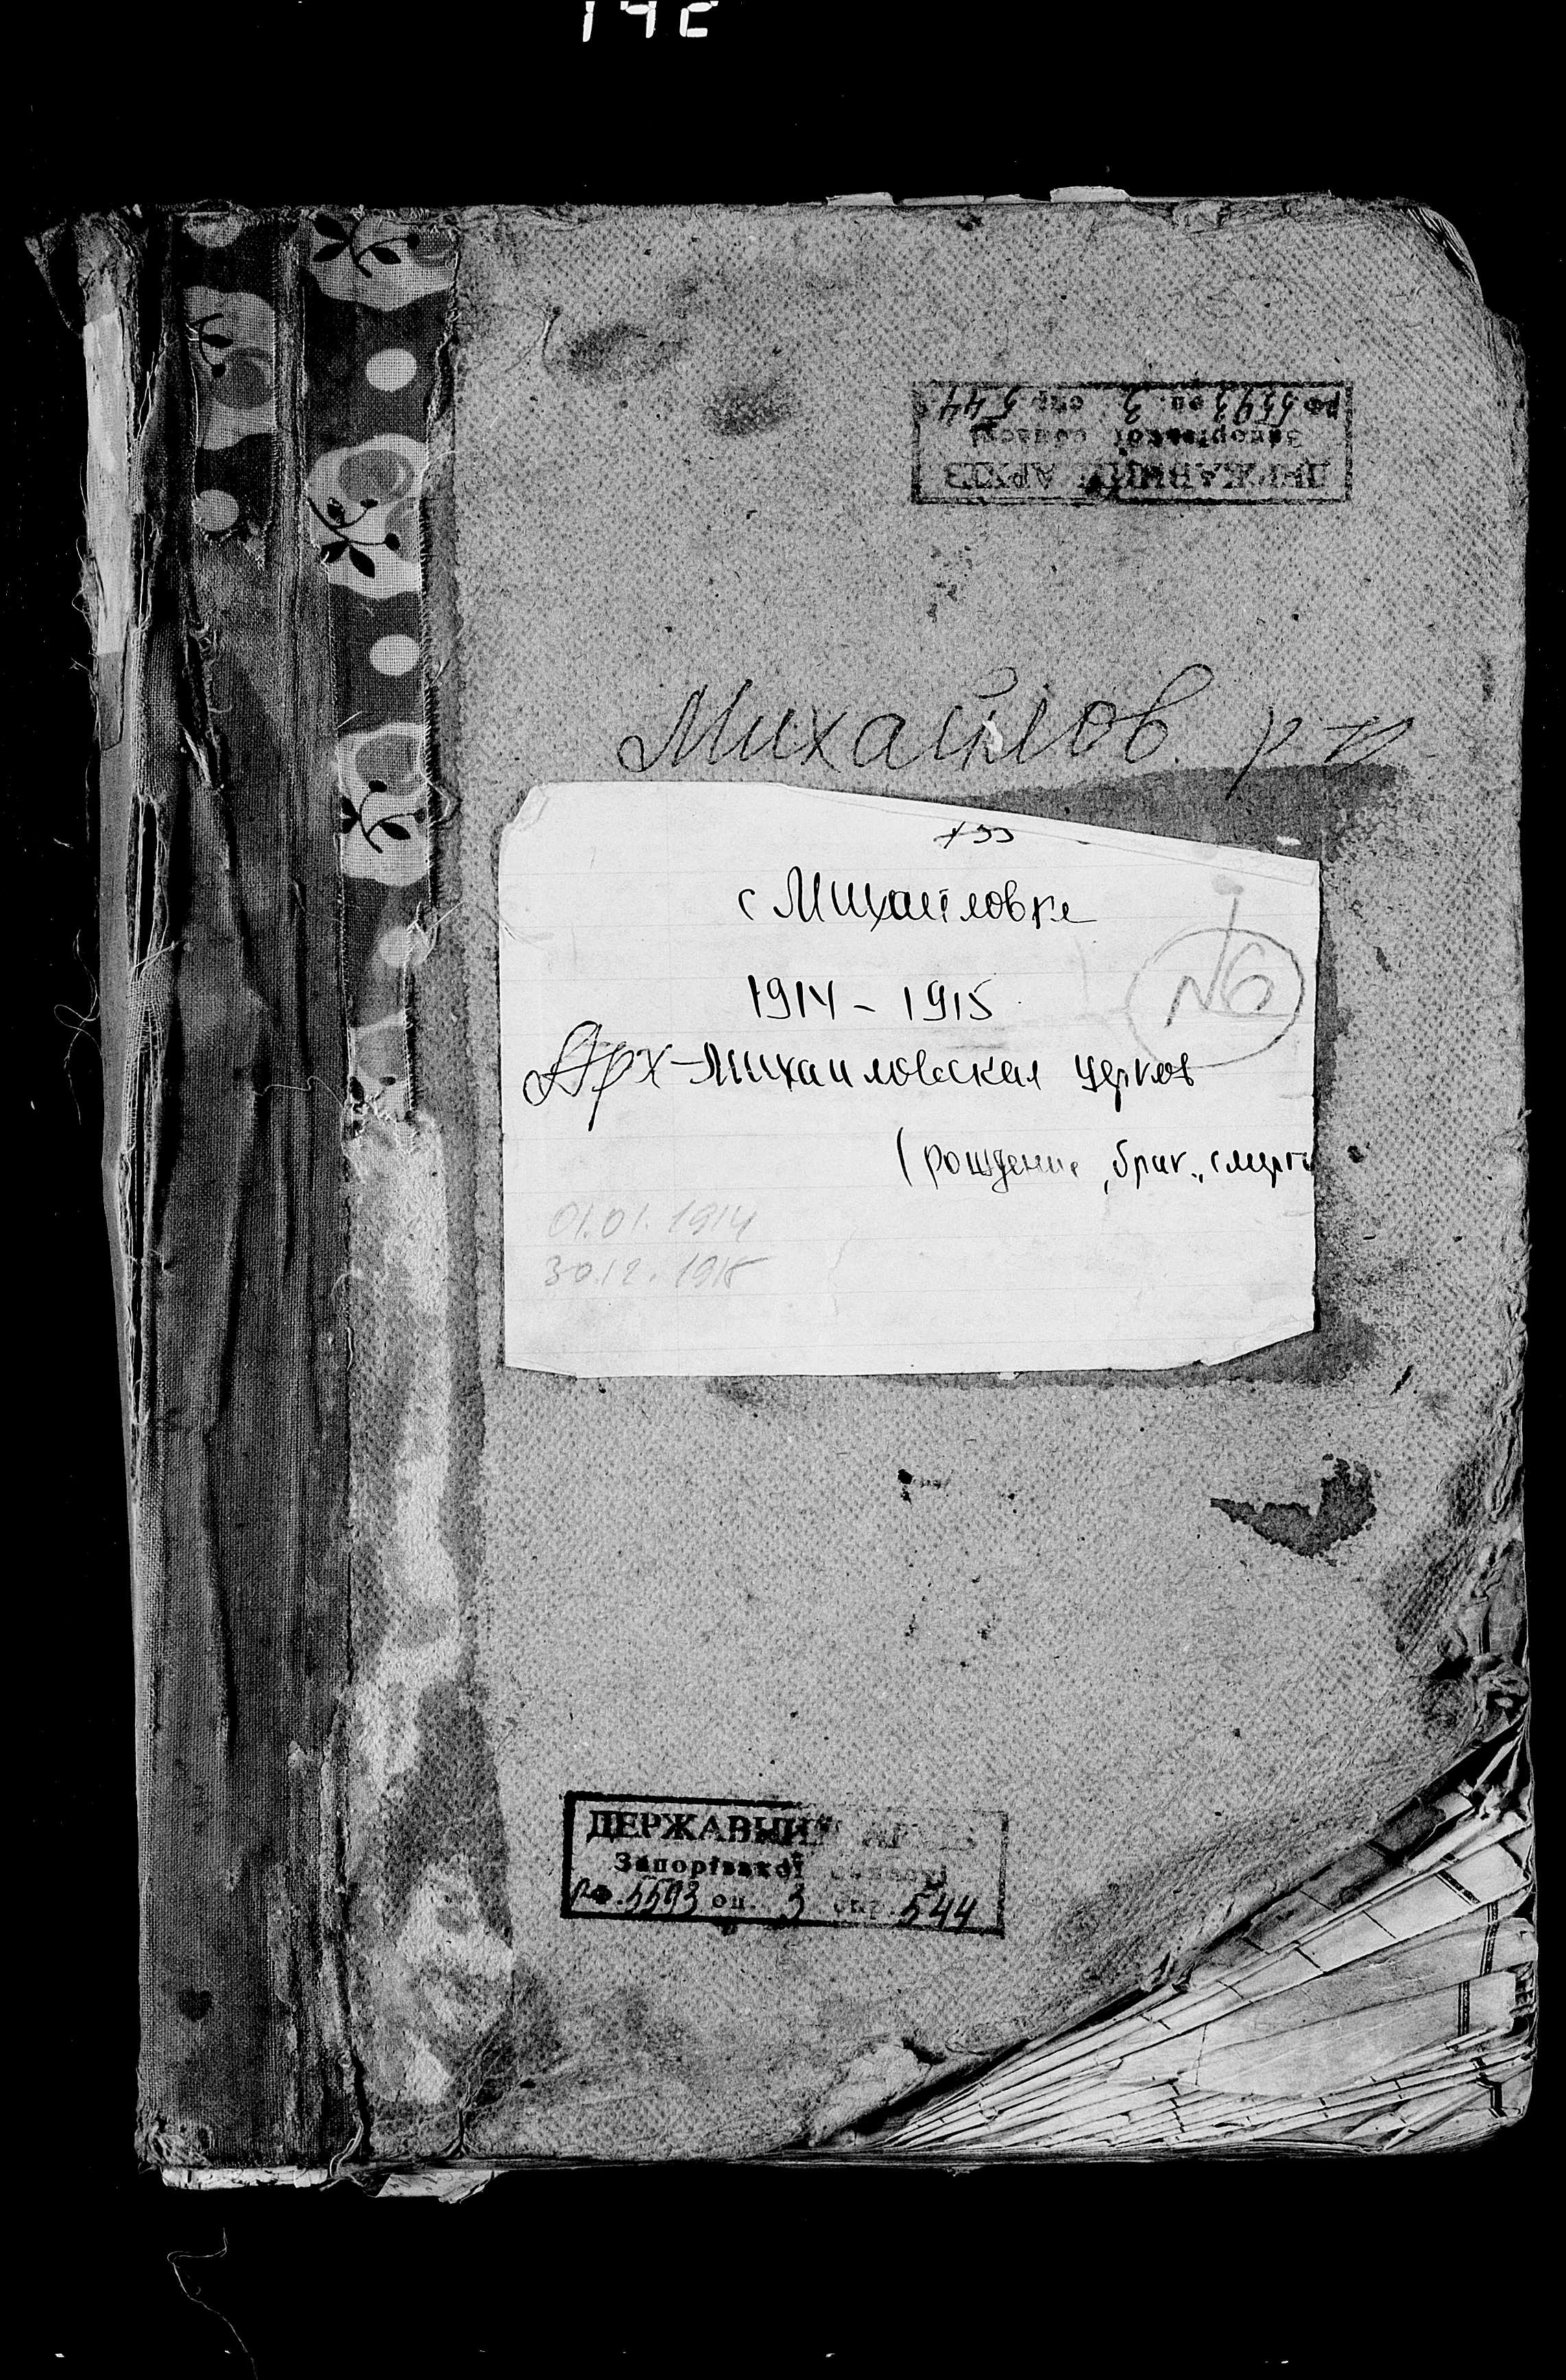 рф 5593 оп. 3 спр. 544
Запорізької області
ДЕРЖАВНИЙ АРХІВ
Михайлов. р-н
с Михайловка
1914 - 1915
№6
Арх-Михайловская церковь
(рождение, брак., смерть
01.01.1914
30.12.1915
ДЕРЖАВНИЙ АРХІВ
Запорізької області
РФ.5593 оп. 3 спр. 544